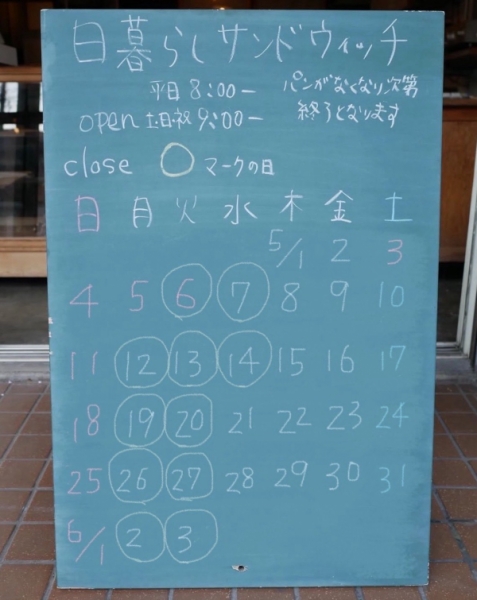 日暮らしサンドウィッチ
平日 8:00ー
パンがなくなり次第
open 土日祝 9:00ー
終了となります
close ○マークの日
日 月 火 水 木 金 土
5/1 2 3
4 5 6 7 8 9 10
11 12 13 14 15 16 17
18 19 20 21 22 23 24
25 26 27 28 29 30 31
6/1 2 3